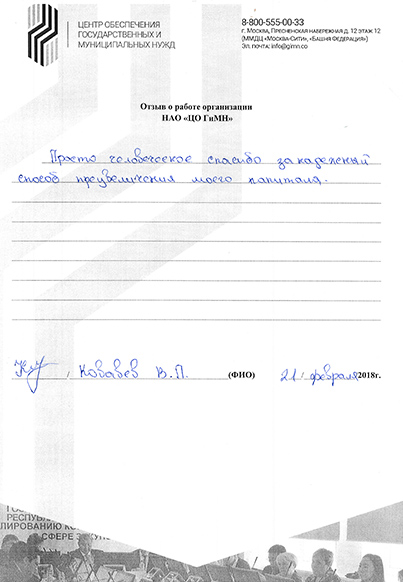 ЦЕНТР ОБЕСПЕЧЕНИЯ
ГОСУДАРСТВЕННЫХ И
МУНИЦИПАЛЬНЫХ НУЖД
8-800-555-00-33
г. Москва, Пресненская набережная д. 12 этаж 12
(ММДЦ «Москва-Сити», «Башня Федерация»)
Эл. почта: info@gimn.co
Отзыв о работе организации
НАО «ЦО ГиМН»
Просто человеческое спасибо за надежный
способ преувеличения моего капитала.
Ковалев В.П. (ФИО) 21 февраля 2018г.
РЕСПУБЛИ
ЛИРОВАНИЮ КО
СФЕРЕ ЗАКУП